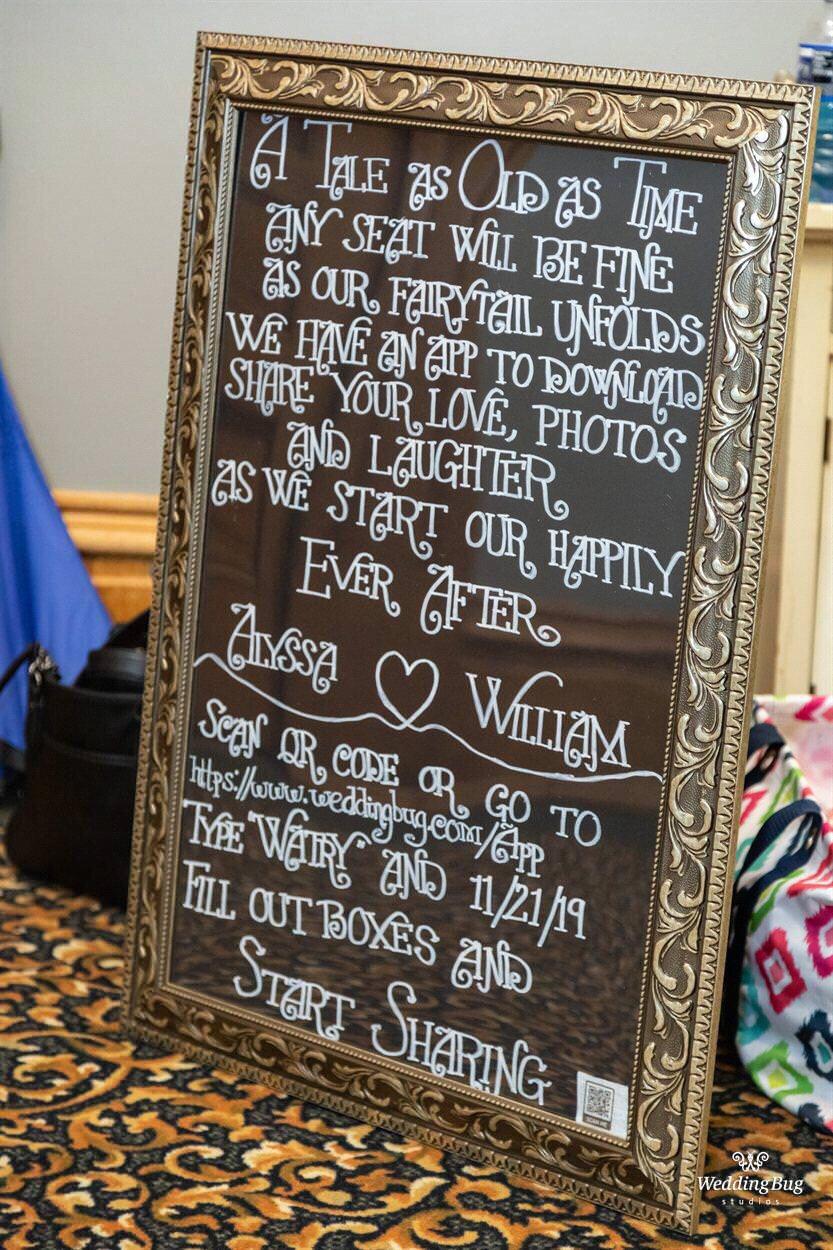 A Tale as Old as Time
any seat will be fine
as our fairytail unfolds
we have an app to download
share your love, photos
and laughter
as we start our happily
Ever After
Alyssa William
Scan QR code or go to
https://www.weddingbug.com/App
Type "Watry" and 11/21/19
Fill out boxes and
Start Sharing
SCAN ME
WeddingBug
studios